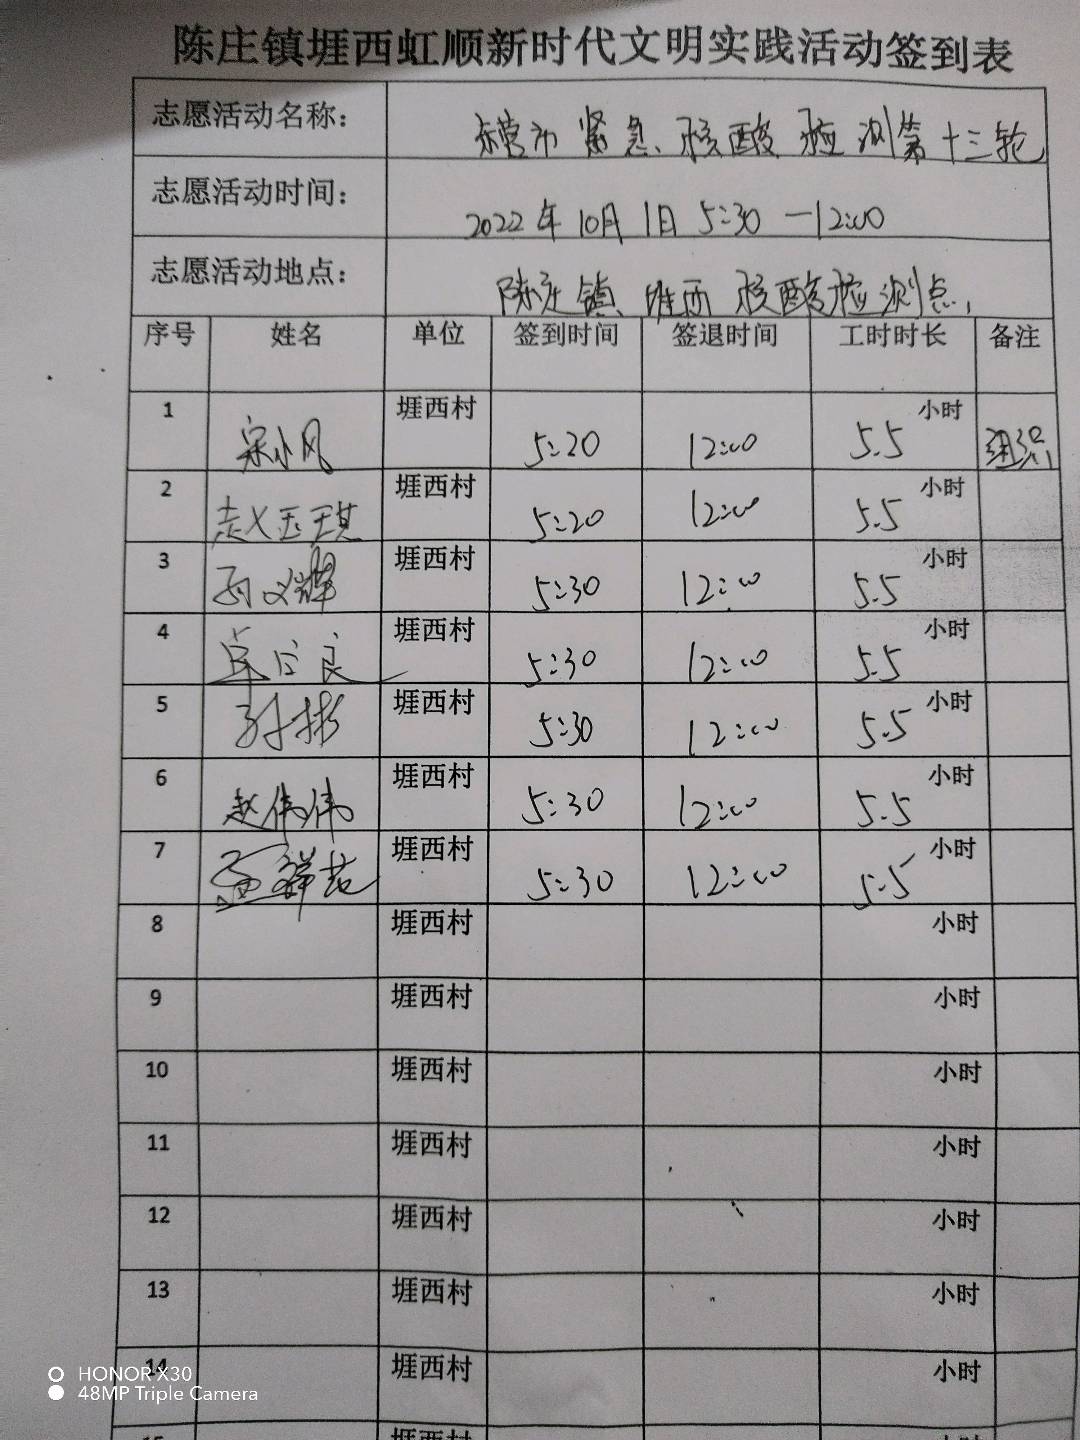 陈庄镇堐西虹顺新时代文明实践活动签到表
志愿活动名称： 东营市紧急核酸检测第十三轮
志愿活动时间： 2022年10月1日 5:30 — 12:00
志愿活动地点： 陈庄镇堐西核酸检测点
序号 姓名 单位 签到时间 签退时间 工时时长 备注
1 宋小风 堐西村 5:20 12:00 5.5 小时 组织
2 赵玉琪 堐西村 5:20 12:00 5.5 小时
3 孙文辉 堐西村 5:30 12:00 5.5 小时
4 良 堐西村 5:30 12:00 5.5 小时
5 孙彬 堐西村 5:30 12:00 5.5 小时
6 赵伟伟 堐西村 5:30 12:00 5.5 小时
7 孟鲜花 堐西村 5:30 12:00 5.5 小时
8 堐西村 小时
9 堐西村 小时
10 堐西村 小时
11 堐西村 小时
12 堐西村 小时
13 堐西村 小时
14 堐西村 小时
15 堐西村 小时
HONOR X30
48MP Triple Camera